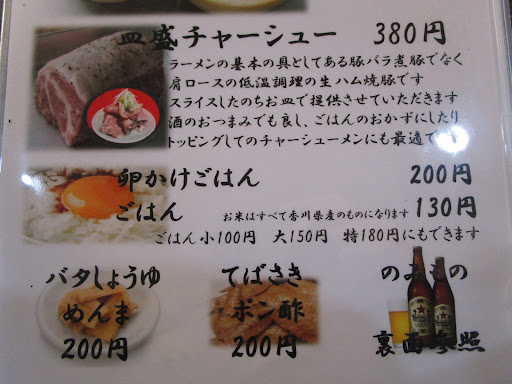 皿盛チャーシュー 380円
ラーメンの基本の具としてある豚バラ煮豚でなく
肩ロースの低温調理の生ハム焼豚です
スライスしたのちお皿で提供させていただきます
酒のおつまみでも良し、ごはんのおかずにしたり
トッピングしてのチャーシューメンにも最適です
卵かけごはん 200円
ごはん お米はすべて香川県産のものになります 130円
ごはん小100円 大150円 特180円にもできます
バタしょうゆ
めんま
200円
てばさき
ポン酢
200円
のみもの
裏面参照